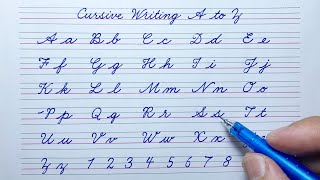 Cursive Writing A to Z
A a B b C c D d E e
F f G g H h I i J j
K k L l M m N n O o
P p Q q R r S s T t
U u V v W w X x
Z z 1 2 3 4 5 6 7 8